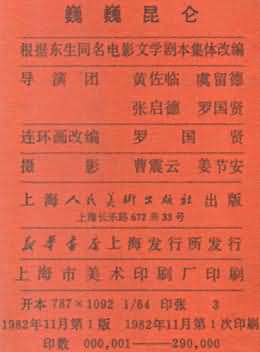 巍巍昆仑
根据东生同名电影文学剧本集体改编
导演团 黄佐临 虞留德
张启德 罗国贤
连环画改编 罗国贤
摄影 曹震云 姜节安
上海人民美術出版社出版
上海长乐路672弄33号
新华书店上海发行所发行
上海市美术印刷厂印刷
开本 787×1092 1/64 印张 3
1982年11月第1版 1982年11月第1次印刷
印数 000,001——290,000